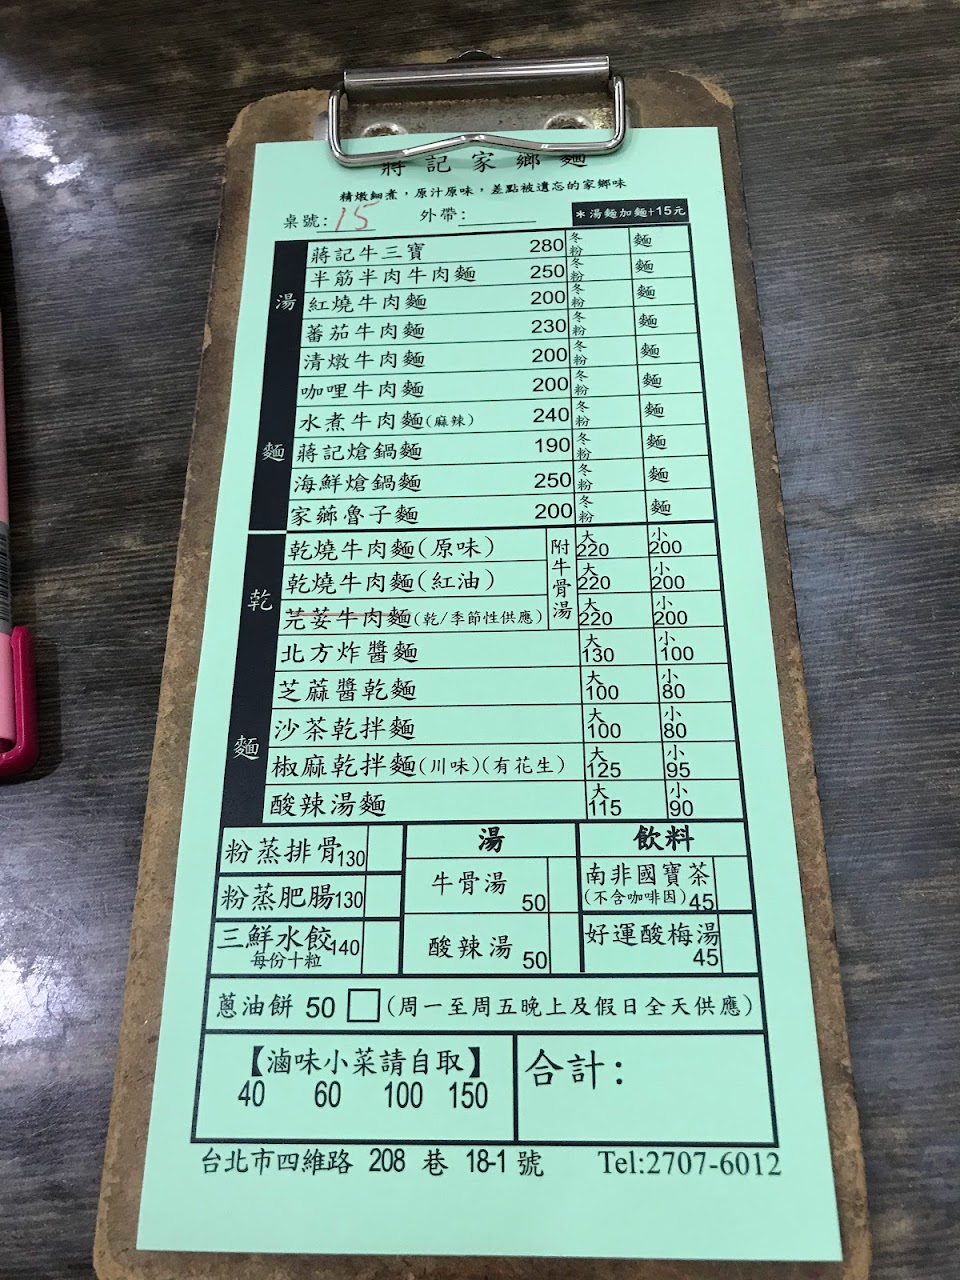 蔣記家鄉麵
精燉細煮，原汁原味，差點被遺忘的家鄉味
桌號: 15 外帶: ＊湯麵加麵+15元
湯麵
蔣記牛三寶 280 冬粉 麵
半筋半肉牛肉麵 250 冬粉 麵
紅燒牛肉麵 200 冬粉 麵
蕃茄牛肉麵 230 冬粉 麵
清燉牛肉麵 200 冬粉 麵
咖哩牛肉麵 200 冬粉 麵
水煮牛肉麵(麻辣) 240 冬粉 麵
蔣記熗鍋麵 190 冬粉 麵
海鮮熗鍋麵 250 冬粉 麵
家薌魯子麵 200 冬粉 麵
乾麵
附牛骨湯
乾燒牛肉麵(原味) 大220 小200
乾燒牛肉麵(紅油) 大220 小200
芫荽牛肉麵(乾/季節性供應) 大220 小200
北方炸醬麵 大130 小100
芝蔴醬乾麵 大100 小80
沙茶乾拌麵 大100 小80
椒麻乾拌麵(川味)(有花生) 大125 小95
酸辣湯麵 大115 小90
粉蒸排骨130
粉蒸肥腸130
三鮮水餃140
每份十粒
湯
牛骨湯 50
酸辣湯 50
飲料
南非國寶茶
(不含咖啡因) 45
好運酸梅湯
45
蔥油餅 50 □ (周一至周五晚上及假日全天供應)
【滷味小菜請自取】
40 60 100 150
合計：
台北市四維路 208 巷 18-1 號 Tel:2707-6012